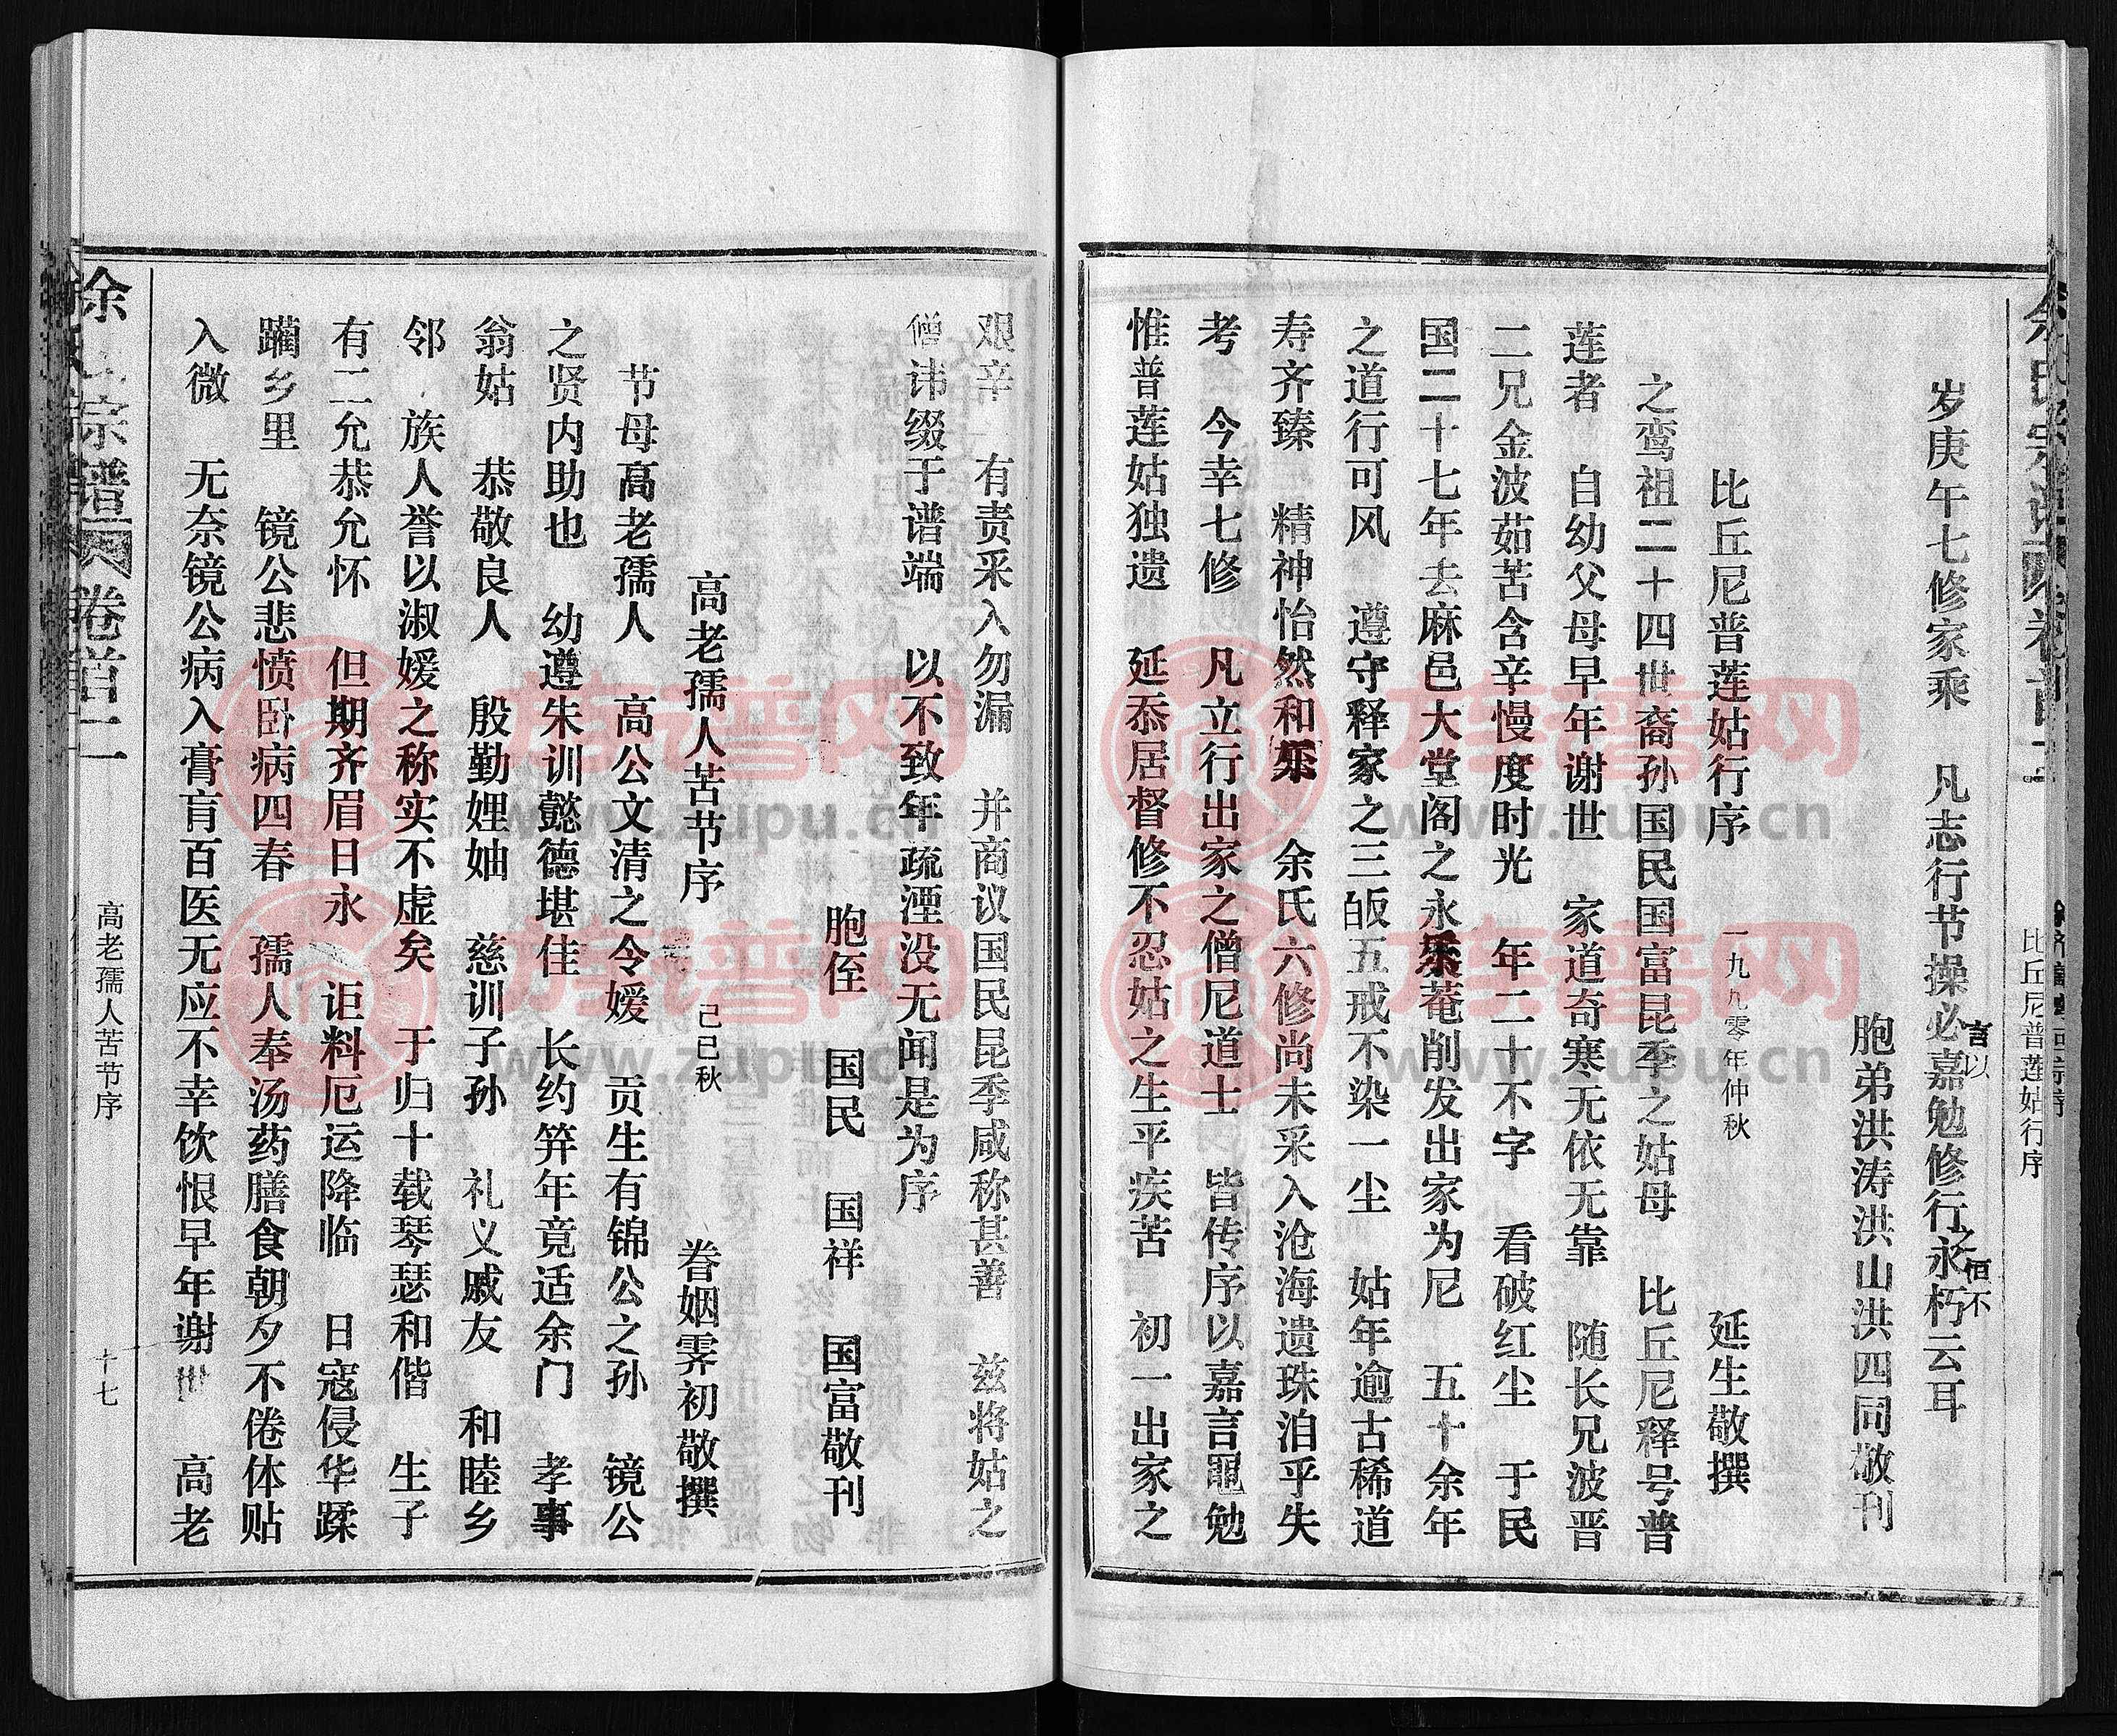 余氏宗谱 卷首二
比丘尼普莲姑行序
岁庚午七修家乘 凡志行节操必嘉勉修行永朽云耳
言以
之恒不
胞弟洪涛洪山洪四同敬刊
比丘尼普莲姑行序 一九九零年仲秋 延生敬撰
之鸾祖二十四世裔孙国民国富昆季之姑母 比丘尼释号普
莲者 自幼父母早年谢世 家道奇寒无依无靠 随长兄波晋
二兄金波茹苦含辛慢度时光 年二十不字 看破红尘 于民
国二十七年去麻邑大堂阁之永乐菴削发出家为尼 五十余年
之道行可风 遵守释家之三皈五戒不染一尘 姑年逾古稀道
寿齐臻 精神怡然和乐 余氏六修尚未采入沧海遗珠洎乎失
考 今幸七修 凡立行出家之僧尼道士 皆传序以嘉言黾勉
惟普莲姑独遗 延忝居督修不忍姑之生平疾苦 初一出家之
艰辛 有责采入勿漏 并商议国民昆季咸称甚善 兹将姑之
僧讳缀于谱端 以不致年疏湮没无闻是为序
胞侄 国民 国祥 国富敬刊
高老孺人苦节序 己巳秋 眷姻霁初敬撰
节母高老孺人 高公文清之令嫒 贡生有锦公之孙 镜公
之贤内助也 幼遵朱训懿德堪佳 长约笄年竟适余门 孝事
翁姑 恭敬良人 殷勤娌妯 慈训子孙 礼义戚友 和睦乡
邻 族人誉以淑媛之称实不虚矣 于归十载琴瑟和偕 生子
有二允恭允怀 但期齐眉日永 讵料厄运降临 日寇侵华蹂
躏乡里 镜公悲愤卧病四春 孺人奉汤药膳食朝夕不倦体贴
入微 无奈镜公病入膏肓百医无应不幸饮恨早年谢世 高老
余氏宗谱 卷首二
高老孺人苦节序
十七
族谱网
www.zupu.cn
族谱网
www.zupu.cn
族谱网
www.zupu.cn
族谱网
www.zupu.cn